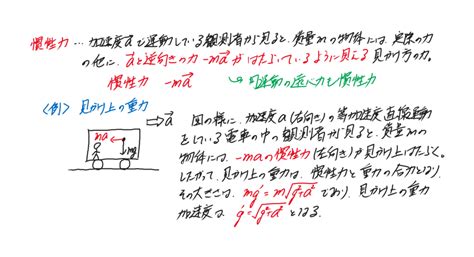 慣性力 … 加速度 a⃗ で運動している観測者から見ると、質量 m の物体には、実際の力
の他に、a⃗ と逆向きの力 -ma⃗ がはたらいているように見える見かけの力。
慣性力 -ma⃗ → 円運動の遠心力も慣性力
〈例〉 見かけ上の重力
a⃗
ma
mg
図の様に、加速度 a (右向き) の等加速度直線運動
をしている電車の中の観測者から見ると、質量 m の
物体には、-ma の慣性力 (左向き) が見かけ上はたらく。
したがって、見かけ上の重力は、慣性力と重力の合力となり、
その大きさは、mg' = m√g²+a² であり、見かけ上の重力
加速度は、g' = √g²+a² となる。